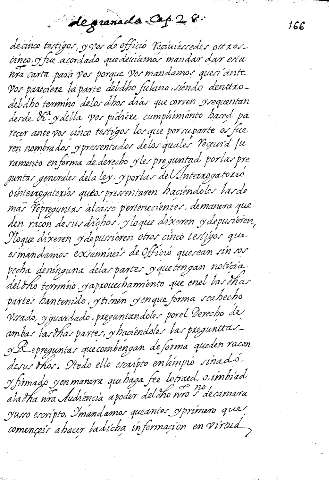 de granada. Cap. 28.
166
de cinco testigos, y vos de officio Recivieredes otros
cinco, y fue acordado que deviamos mandar dar esta
nra carta para vos porque vos mandamos que si ante
vos pareciere la parte del dho fulano siendo dentro
del dho termino de los dhos dias que corren y se quentan
desde y della vos pidiere cumplimiento hará pa
recer ante vos cinco testigos los que por su parte os fue
ren nombrados y presentados de los quales Recivid Ju
ramento en forma de derecho, y les preguntad por las pre
guntas generales de la ley, y por las del Interrogatorio
o interrogatorios que os presentaren haciendoles las de
mas Repreguntas al caso pertenecientes, de manera que
den raçon de sus dichos, y lo que dixeren y depusieren,
y lo que dixeren y depusieren otros cinco testigos que
os mandamos examineis de Officio que sean sin sos
pecha de ninguna de las partes y que tengan noticia
del dho termino, y aprovechamiento que en el las dhas
partes han tenido, y tienen y en que forma se a hecho
Usado, y guardado, preguntandoles por el Derecho de
ambas las dhas partes, y haciendoles las preguntas
y Repreguntas que combengan de forma que den raçon
de sus dhos. Y todo ello escripto en limpio sinado
y firmado y en manera que haga fee lo traed, o imbiad
a la dha nra Audiencia a poder del dho nro sno de camara
yuso escripto. Y mandamos que antes, y primero que
començeis a hacer la dicha informacion en Virtud